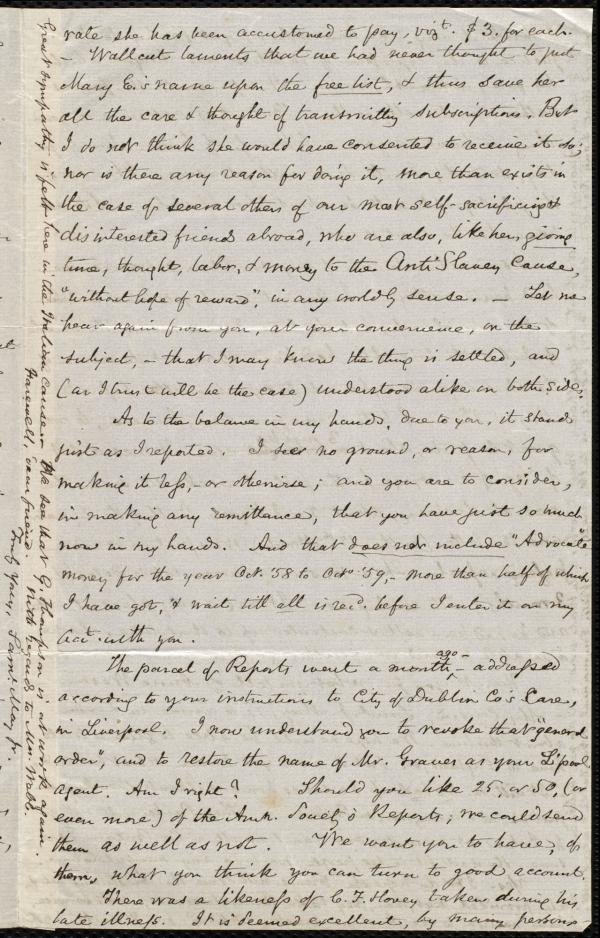 rate she has been accustomed to pay, vizt. $3. for each.
- Wallcut laments that we had never thought to put
Mary E.'s name upon the free list, & thus save her
all the care & thought of transmitting subscriptions. But
I do not think she would have consented to receive it so;
nor is there any reason for doing it, more than exists in
the case of several others of our most self-sacrificing &
disinterested friends abroad, who are also, like her, giving
time, thought, labor, & money to the Anti Slavery Cause,
"without hope of reward", in any worldly sense. - Let me
hear again from you, at your convenience, on the
subject, - that I may know the thing is settled, and
(as I trust will be the case) understood alike on both sides.
As to the balance in my hands, due to you, it stands
just as I reported. I see no ground, or reason, for
making it less, - or otherwise; and you are to consider,
in making any remittance, that you have just so much
now in my hands. And that does not include "Advocate"
money for the year Oct. '58 to Octo. '59, - more than half of which
I have got, & wait till all is recd. before I enter it on my
acct. with you.
The parcel of Reports went a month ago - addressed
according to your instructions to City of Dublin Co's Care,
in Liverpool. I now understand you to revoke that "general
order", and to restore the name of Mr. Graves as your L'pool
agent. Am I right? Should you like 25, or 50, (or
even more) of the Amn. Society's Reports; we could send
them as well as not. We want you to have, of
them, what you think you can turn to good account.
There was a likeness of C. F. Hovey taken during his
late illness. It is deemed excellent, by many persons
Great sympathy is felt here in the Italian cause. We see that G. Thompson is at work again.
Farewell, dear friend. With regards to Mrs. Webb.
Truly Yours, Saml. May Jr.